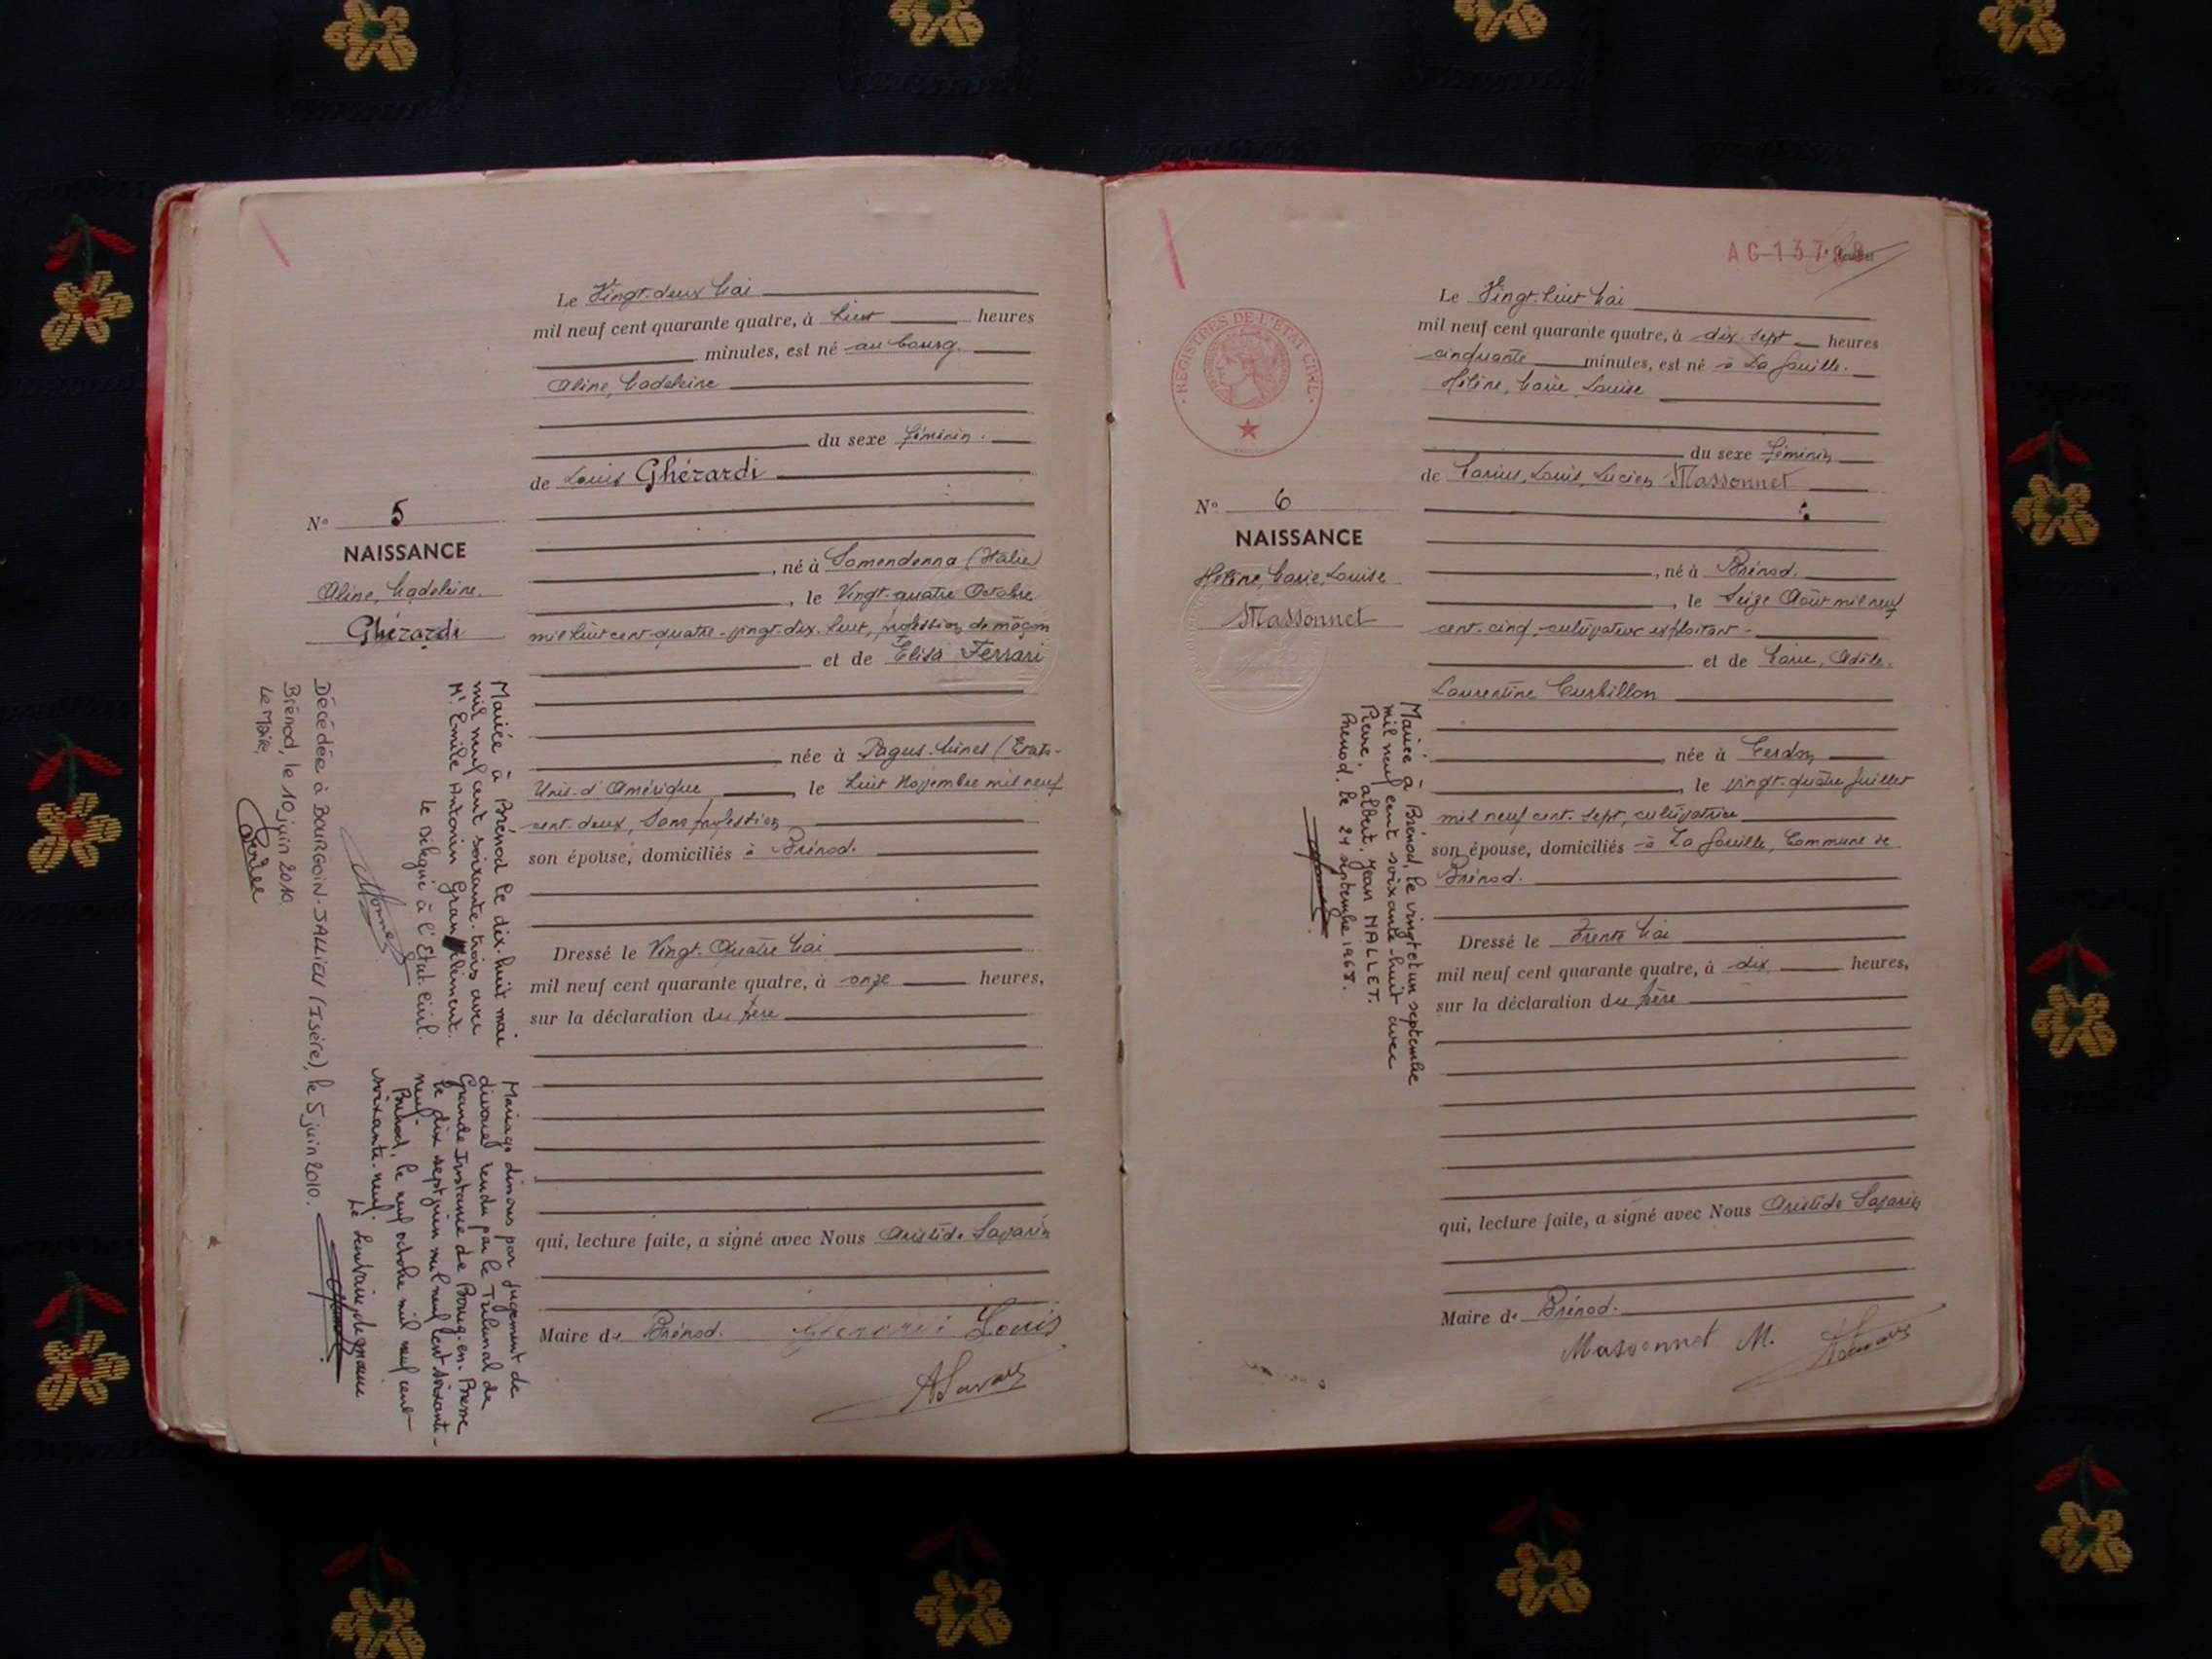 Le Vingt-deux Mai
mil neuf cent quarante quatre, à huit heures
minutes, est né au bourg.
Aline, Madeleine
du sexe féminin.
de Louis Ghézardi
N° 5
NAISSANCE
Aline, Madeleine.
Ghézardi
, né à Somendenna (Italie)
, le Vingt-quatre Octobre
mil huit cent quatre-vingt-dix-huit, profession de maçon
et de Elisa Ferrari
née à Pagus-Mines (Etats-
Unis-d'Amérique , le huit Novembre mil neuf
cent-deux, sans profession
son épouse, domiciliés à Brénod.
Dressé le Vingt-Quatre Mai
mil neuf cent quarante quatre, à onze heures,
sur la déclaration du père
qui, lecture faite, a signé avec Nous Aristide Savarin
Maire de Brénod. Louis
ASavarin
Mariée à Brénod le dix-huit mai
mil neuf cent soixante-trois avec
Mr. Emile Antonin Gran Clément.
Le Délégué à l'Etat-Civil.
Mariage dissous par jugement de
divorce rendu par le Tribunal de
Grande Instance de Bourg-en-Bresse
le dix sept juin mil neuf cent soixante-
neuf.
Brénod, le neuf octobre mil neuf cent
soixante-neuf.
Le Secrétaire de mairie
Décédée à BOURGOIN-JALLIEU (Isère), le 5 juin 2010.
Brénod, le 10 juin 2010.
Le Maire,
AG-137
Le Vingt-huit Mai
mil neuf cent quarante quatre, à dix-sept heures
cinquante minutes, est né à La Gouille.
Hélène, Marie, Louise
REGISTRES DE L'ÉTAT CIVIL
du sexe féminin
de Marius, Louis, Lucien Massonnet
N° 6
NAISSANCE
Hélène, Marie, Louise
Massonnet
, né à Brénod.
, le Seize Août mil neuf
cent-cinq, cultivateur exploitant-
et de Marie, Adèle.
Laurentine Curbillon
née à Cerdon
, le vingt-quatre Juillet
mil neuf cent-sept, cultivatrice
son épouse, domiciliés à La Gouille, Commune de
Brénod.
Dressé le Trente Mai
mil neuf cent quarante quatre, à dix heures,
sur la déclaration du père
qui, lecture faite, a signé avec Nous Aristide Savarin
Maire de Brénod.
Massonnet M. ASavarin
Mariée à Brénod, le vingt et un septembre
mil neuf cent soixante-huit avec
Pierre, Albert, Jean MALLET.
Brénod, le 24 septembre 1968.